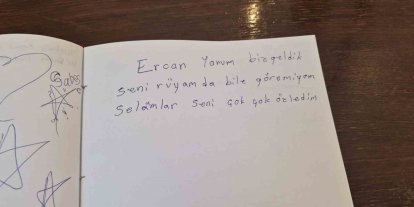 Ercan Yorum biz geldik
seni rüyamda bile göremiyom
Selâmlar seni çok çok özledim